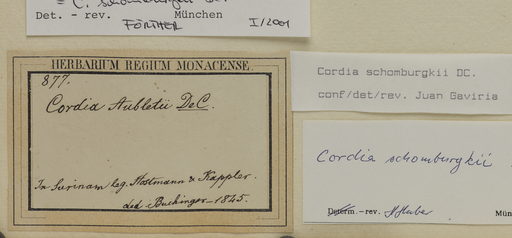 = C. schomburgkii DC.
Det. - rev. München
FÖRTHER I/2001
HERBARIUM REGIUM MONACENSE.
877.
Cordia Aubletii DeC.
In Surinam leg. Hostmann & Kappler.
ded. Buchinger 1845.
Cordia schomburgkii DC.
conf/det/rev. Juan Gaviria
Cordia schomburgkii
Determ.-rev. Huber Mün